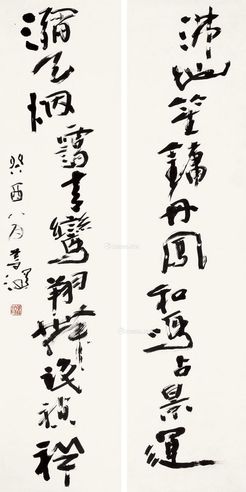 沸地笙鏞丹鳳和鳴占景運
瀰天烟靄青鸞翔舞禎祥
癸酉八月